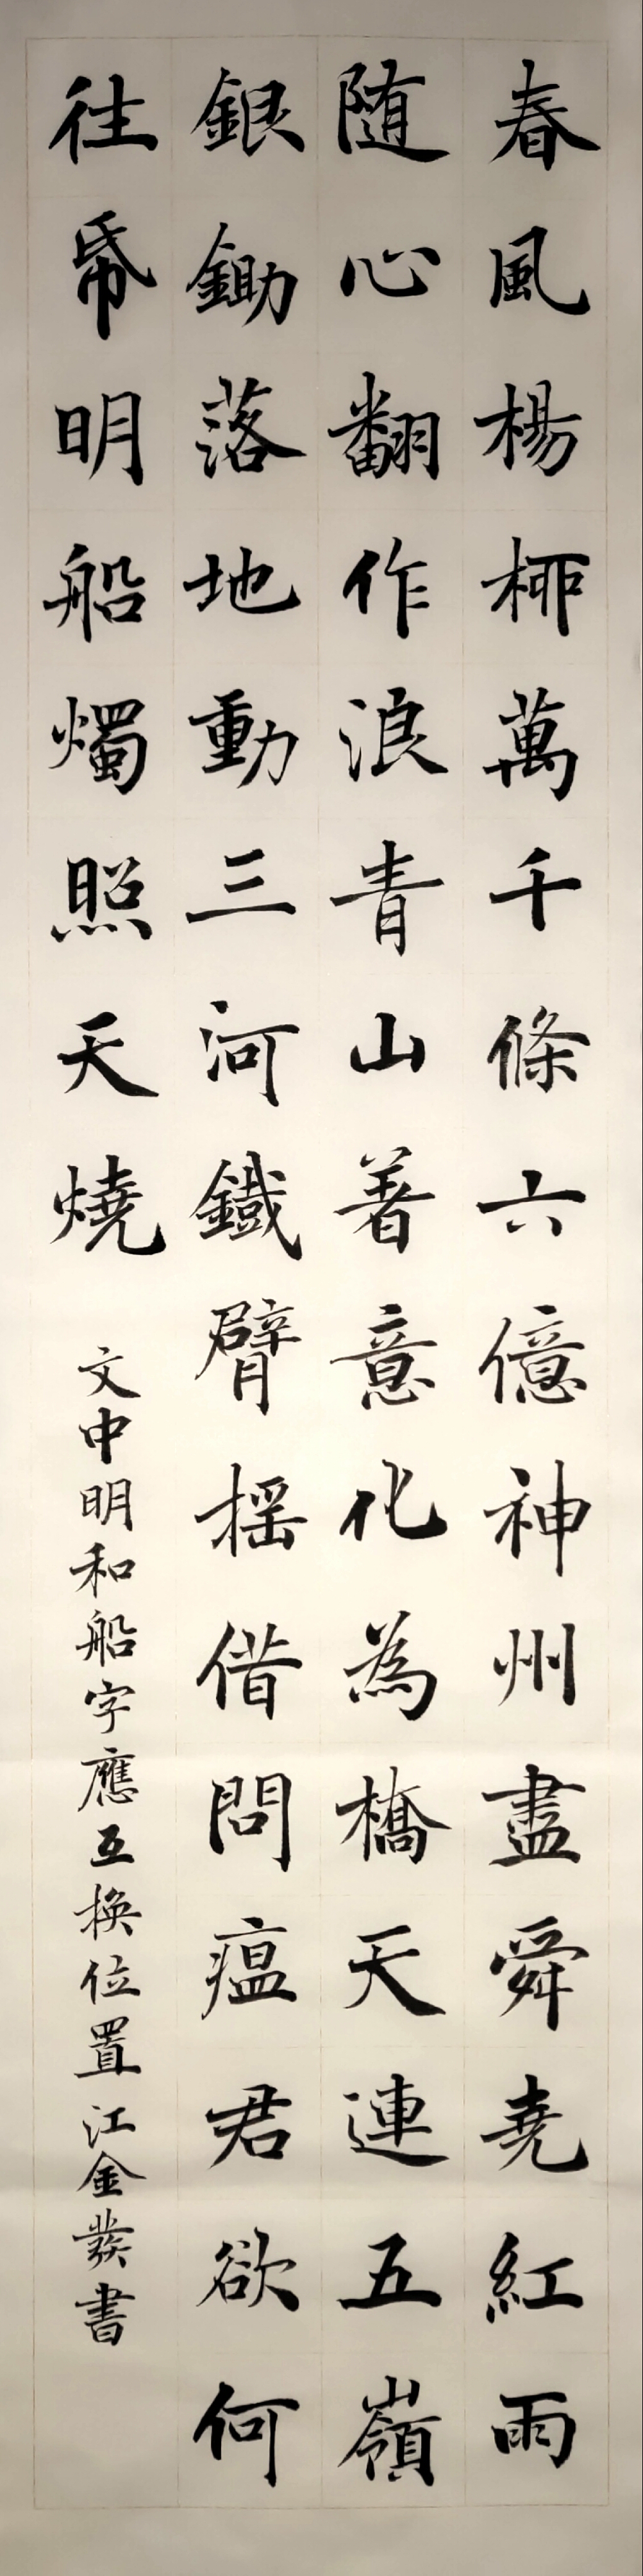 春風楊栁萬千條六億神州盡舜堯紅雨
随心翻作浪青山著意化為橋天連五嶺
銀鋤落地動三河鐵臂摇借問瘟君欲何
往帋明船燭照天燒
文中明和船字應互换位置江金發書